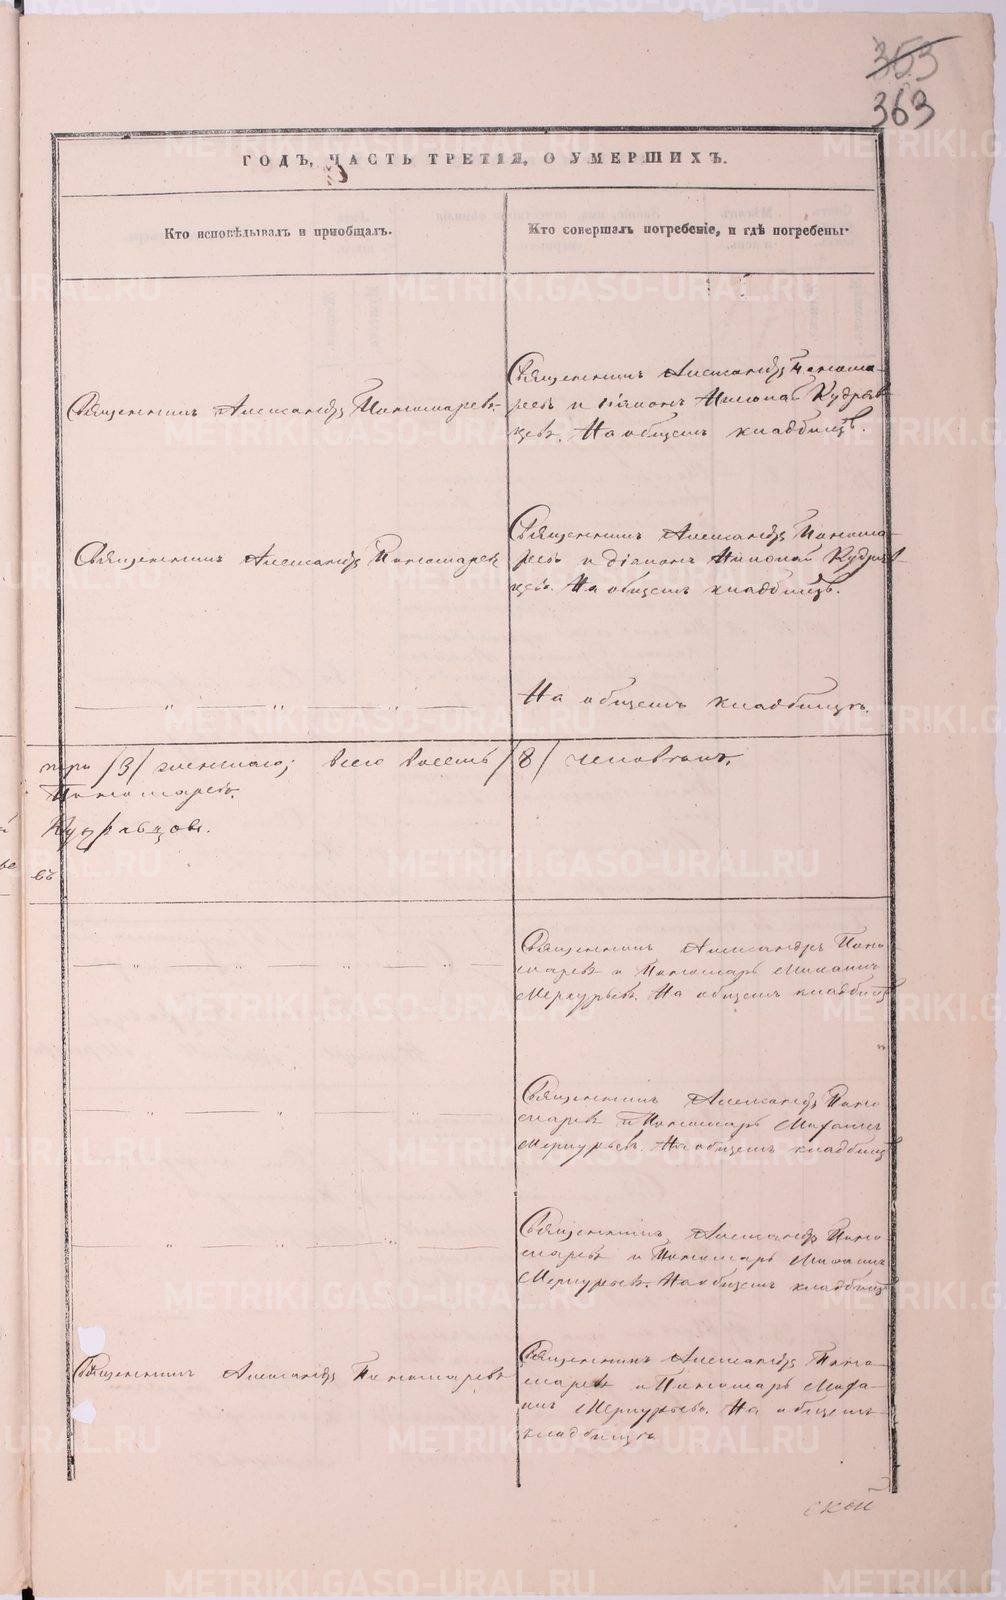 353
363
ГОДЪ, ЧАСТЬ ТРЕТІЯ, О УМЕРШИХЪ.
Кто исповѣдывалъ и пріобщалъ.
Кто совершалъ погребеніе, и гдѣ погребены.
Священникъ Александръ Пономаревъ
Священникъ Александръ Понома-
ревъ и діаконъ Николай Кудряв-
цевъ. На общемъ кладбищѣ.
Священникъ Александръ Пономаревъ
Священникъ Александръ Понома-
ревъ и діаконъ Николай Кудряв-
цевъ. На общемъ кладбищѣ.
На общемъ кладбищѣ.
три /3/ женскаго; всего восемь /8/ человѣкъ.
Пономаревъ.
Кудрявцовъ.
въ
Священникъ Александръ Поно-
маревъ и Пономарь Михаилъ
Меркурьевъ. На общемъ кладбищѣ
Священникъ Александръ Поно-
маревъ и Пономарь Михаилъ
Меркурьевъ. На общемъ кладбищѣ
Священникъ Александръ Поно-
маревъ и Пономарь Михаилъ
Меркурьевъ. На общемъ кладбищѣ
Священникъ Александръ Пономаревъ
Священникъ Александръ Поно-
маревъ и Пономарь Миха-
илъ Меркурьевъ. На общемъ
кладбищѣ
ской
METRIKI.GASO-URAL.RU